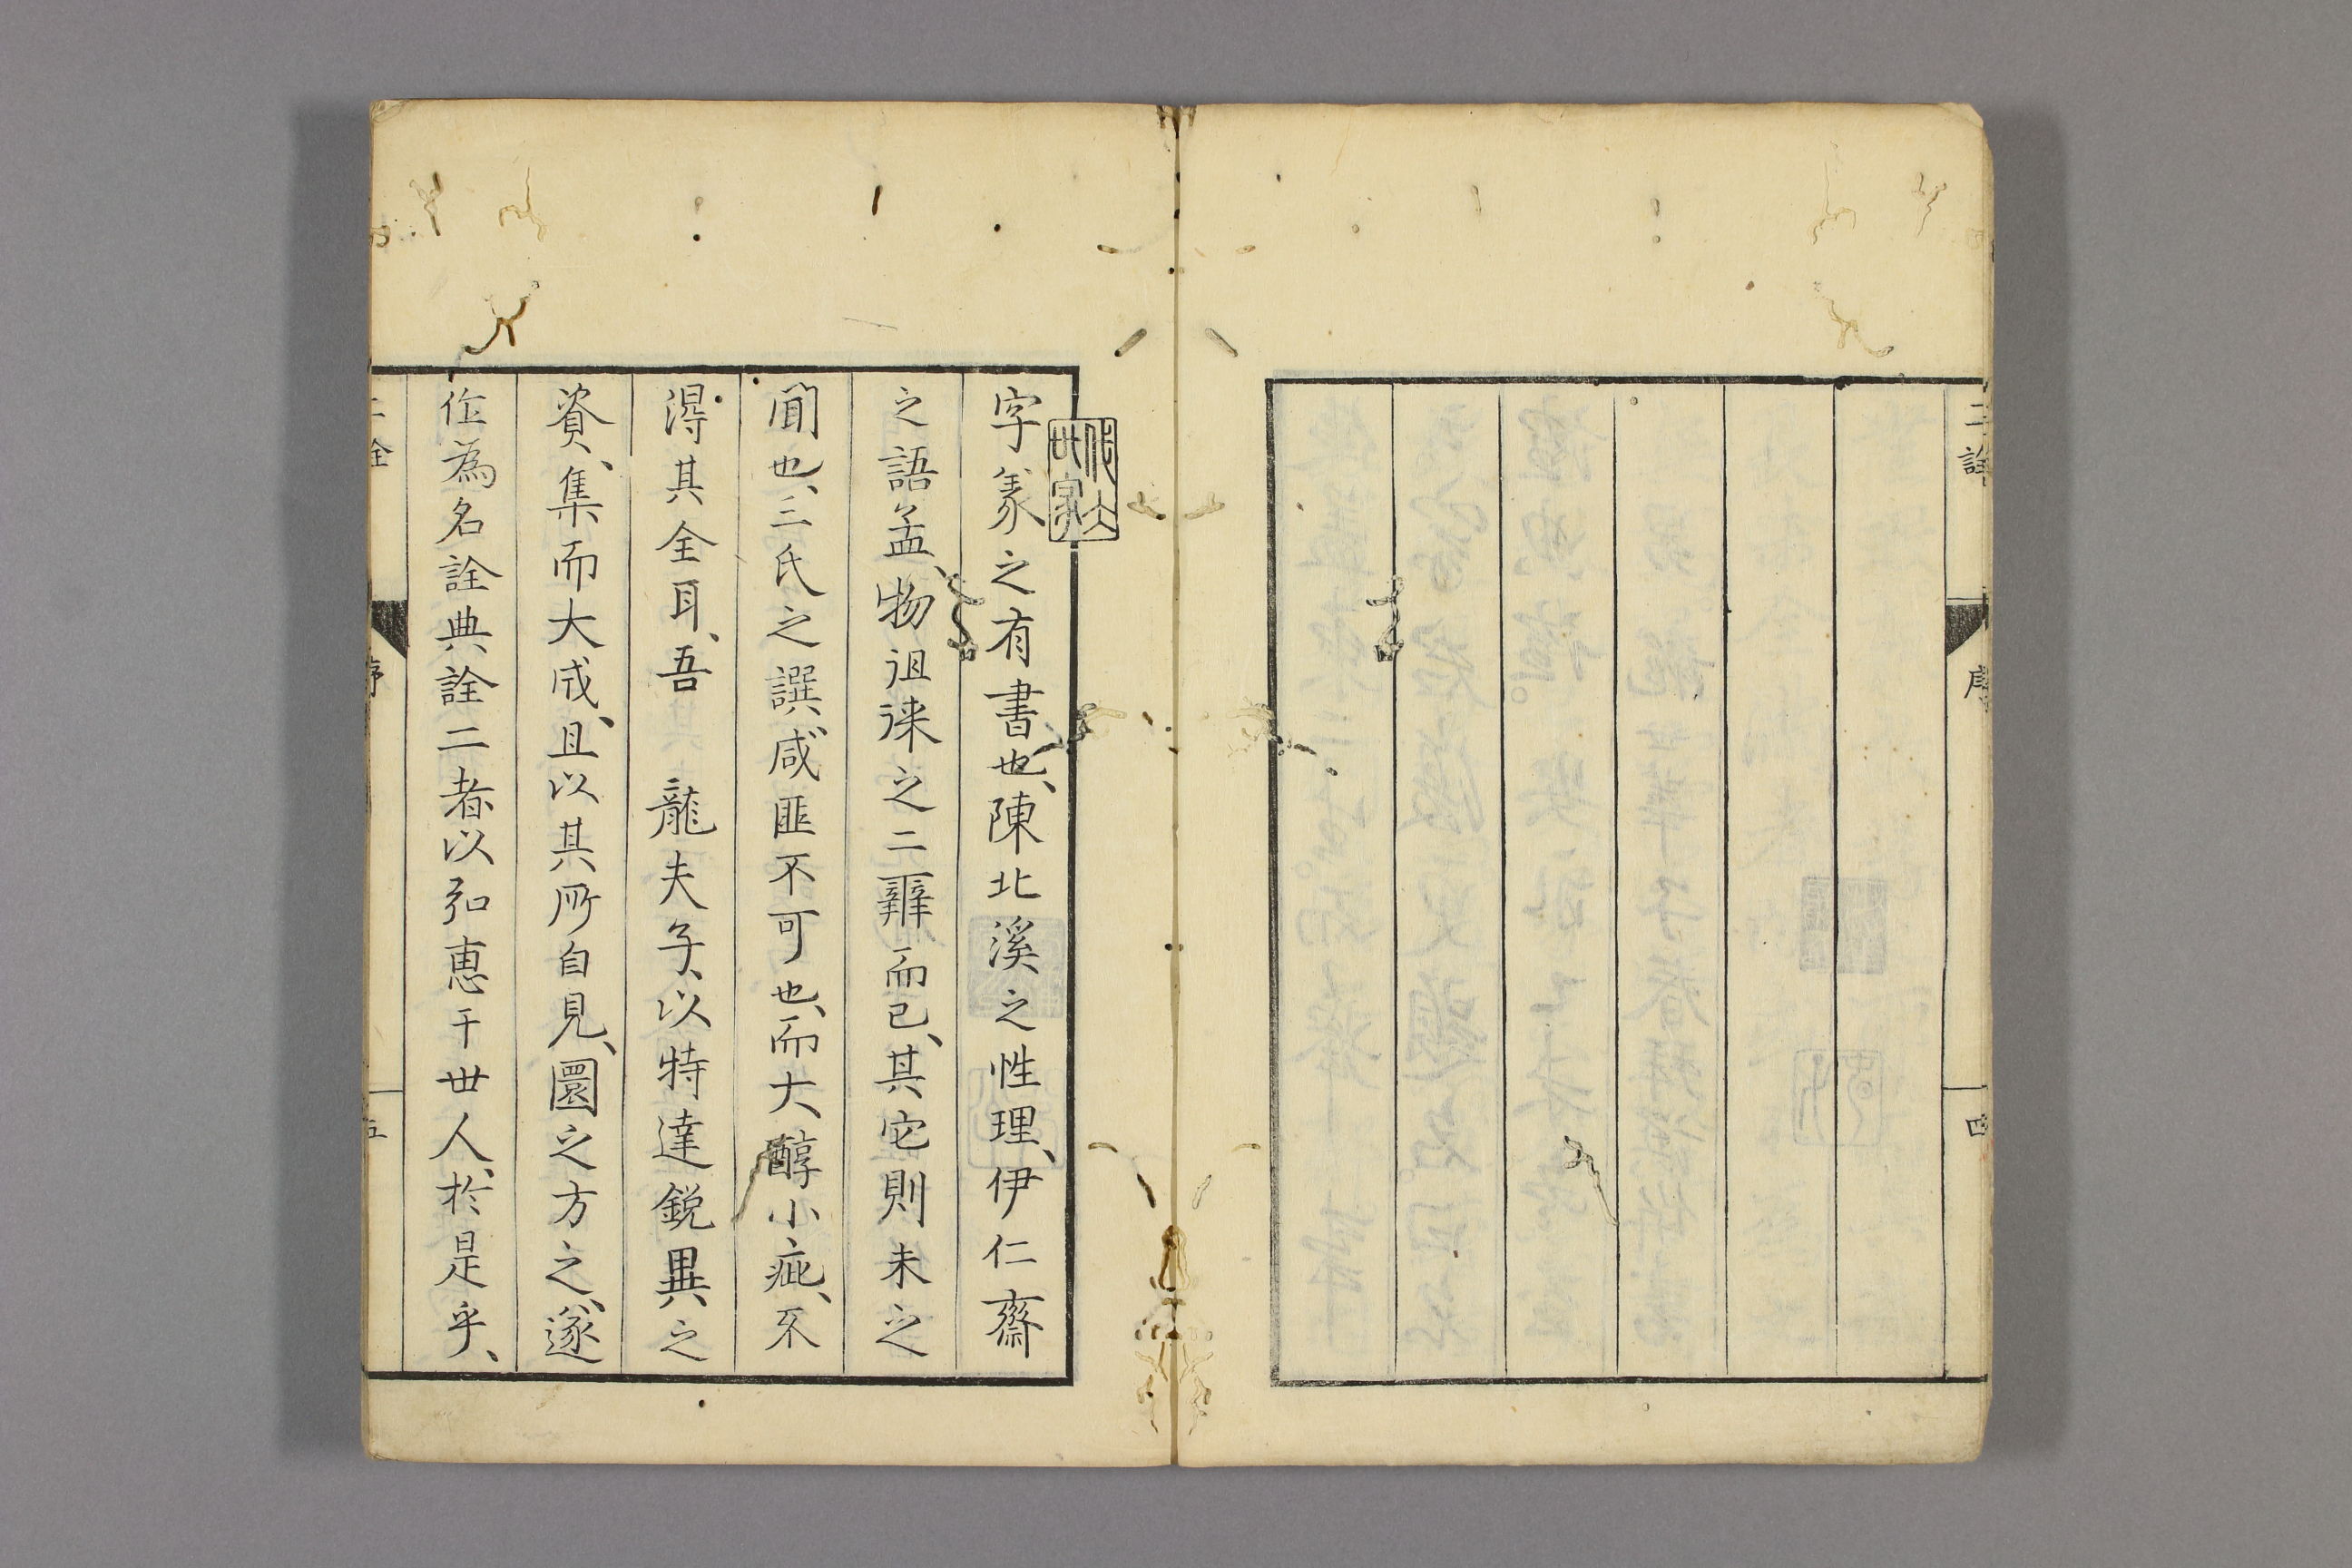 二詮
序
四
字義之有書也、陳北溪之性理、伊仁齋
之語孟、物徂徠之二辨而已、其它則未之
聞也、三氏之譔、咸匪不可也、而大醇小疵、不
得其全耳、吾　龍夫子、以特達鋭異之
資、集而大成、且以其所自見、圜之方之、遂
作為名詮典詮二者以弘惠于世人、於是乎、
二詮
序
五